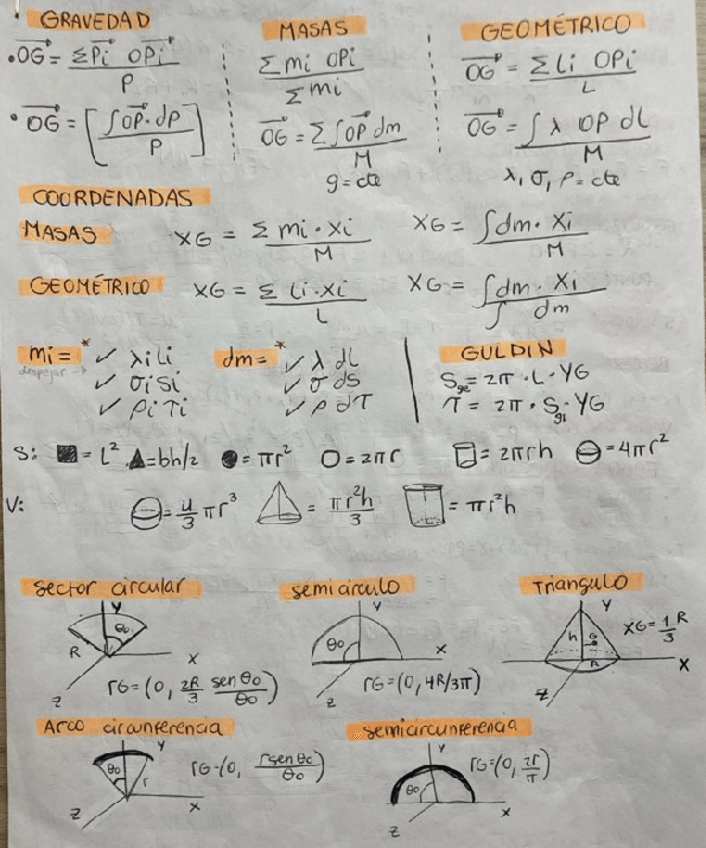 GRAVEDAD
• OG = ΣPi OPi / P
• OG = [∫OP·dp / P]
MASAS
Σ mi OPi / Σ mi
OG = Σ∫OP dm / M
g = cte
GEOMÉTRICO
OG = Σ Li OPi / L
OG = ∫ λ OP dL / M
λ, σ, ρ = cte
COORDENADAS
MASAS XG = Σ mi · Xi / M XG = ∫dm · Xi / M
GEOMÉTRICO XG = Σ Li · Xi / L XG = ∫dm · Xi / ∫ dm
mi = * ✓ λi Li
despejar → ✓ σi Si
✓ ρi τi
dm = * ✓ λ dL
✓ σ ds
✓ ρ dτ
GULDIN
Sge = 2π · L · YG
τ = 2π · Sgi · YG
S: ■ = L² ▲ = bh/2 ● = πr² O = 2πr = 2πrh = 4πr²
V: = 4/3 πr³ = πr²h / 3 = πr²h
Sector circular
Y
θo
R
X
Z
rG = (0, 2R/3 sen θo / θo)
semicirculo
Y
θo
X
Z
rG = (0, 4R/3π)
Triangulo
Y
h G
R
X
Z
XG = 1/3 R
Arco circunferencia
Y
θo
r
X
Z
rG = (0, r sen θo / θo)
semicircunferencia
Y
θo
X
Z
rG = (0, 2r/π)